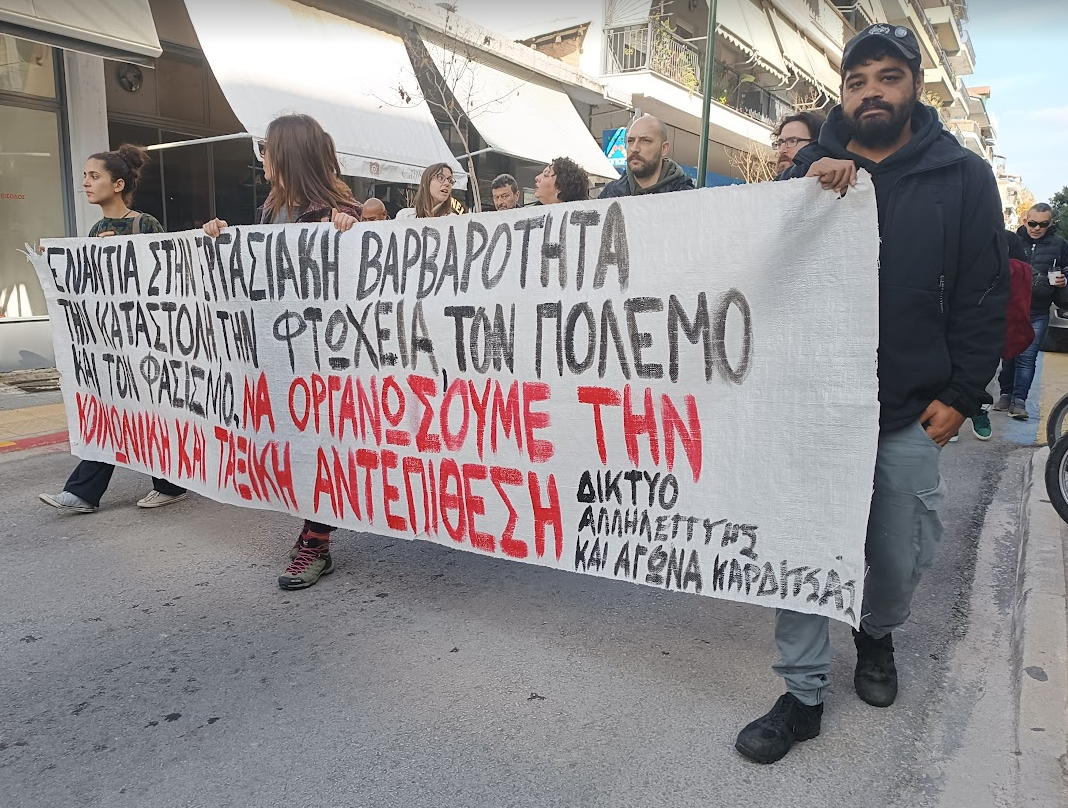 ΕΝΑΝΤΙΑ ΣΤΗΝ ΕΡΓΑΣΙΑΚΗ ΒΑΡΒΑΡΟΤΗΤΑ
ΤΗΝ ΚΑΤΑΣΤΟΛΗ, ΤΗΝ ΦΤΩΧΕΙΑ, ΤΟΝ ΠΟΛΕΜΟ
ΚΑΙ ΤΟΝ ΦΑΣΙΣΜΟ, ΝΑ ΟΡΓΑΝΩΣΟΥΜΕ ΤΗΝ
ΚΟΙΝΩΝΙΚΗ ΚΑΙ ΤΑΞΙΚΗ ΑΝΤΕΠΙΘΕΣΗ
ΔΙΚΤΥΟ
ΑΛΛΗΛΕΓΓΥΗΣ
ΚΑΙ ΑΓΩΝΑ ΚΑΡΔΙΤΣΑΣ